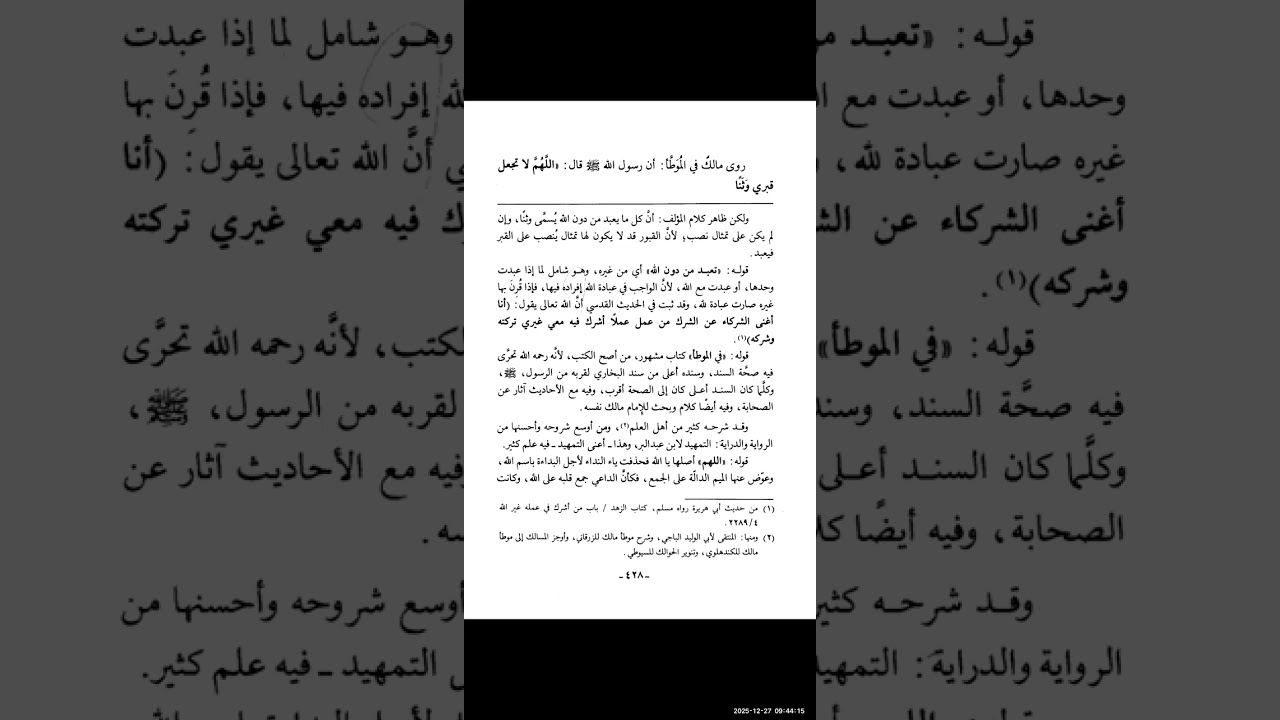 روى مالكٌ في المُوَطَّأ: أن رسول الله ﷺ قال: «اللَّهُمَّ لا تجعل
قبري وَثَنًا
ولكن ظاهر كلام المؤلف: أنَّ كل ما يعبد من دون الله يُسمَّى وثنًا، وإن
لم يكن على تمثال نصب؛ لأنَّ القبور قد لا يكون لها تمثال يُنصب على القبر
فيعبد.
قوله: «تعبد من دون الله» أي من غيره، وهو شامل لما إذا عبدت
وحدها، أو عبدت مع الله، لأنَّ الواجب في عبادة الله إفراده فيها، فإذا قُرِنَ بها
غيره صارت عبادة لله، وقد ثبت في الحديث القدسي أنَّ الله تعالى يقول: (أنا
أغنى الشركاء عن الشرك من عمل عملًا أشرك فيه معي غيري تركته
وشركه)(١).
قوله: «في الموطأ» كتاب مشهور، من أصح الكتب، لأنَّه رحمه الله تحرَّى
فيه صحَّة السند، وسنده أعلى من سند البخاري لقربه من الرسول، ﷺ،
وكلَّما كان السند أعلى كان إلى الصحة أقرب، وفيه مع الأحاديث آثار عن
الصحابة، وفيه أيضًا كلام وبحث للإمام مالك نفسه.
وقد شرحه كثير من أهل العلم(٢)، ومن أوسع شروحه وأحسنها من
الرواية والدراية: التمهيد لابن عبدالبر، وهذا ـ أعنى التمهيد ـ فيه علم كثير.
قوله: «اللهم» أصلها يا الله فحذفت ياء النداء لأجل البداءة باسم الله،
وعوّض عنها الميم الدالّة على الجمع، فكأنَّ الداعي جمع قلبه على الله، وكانت
(١) من حديث أبي هريرة رواه مسلم، كتاب الزهد / باب من أشرك في عمله غير الله
٤/٢٢٨٩.
(٢) ومنها: المنتقى لأبي الوليد الباجي، وشرح موطأ مالك للزرقاني، وأوجز المسالك إلى موطأ
مالك للكندهلوي، وتنوير الحوالك للسيوطي.
ـ ٤٢٨ ـ
2025-12-27 09:44:15